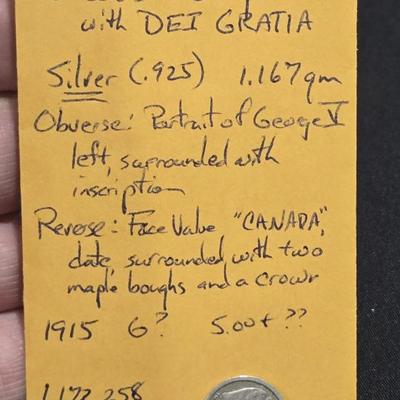 with DEI GRATIA
Silver (.925) 1.167gm
Obverse: Portrait of George V
left, surrounded with
inscription
Reverse: Face Value "CANADA",
date, surrounded with two
maple boughs and a crown
1915 6? 5.00+ ??
1,172,258